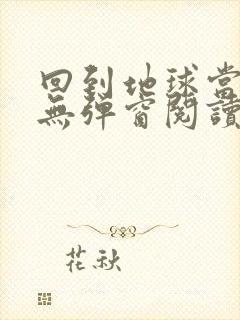 回到地球當
無彈窗閱讀
花秋